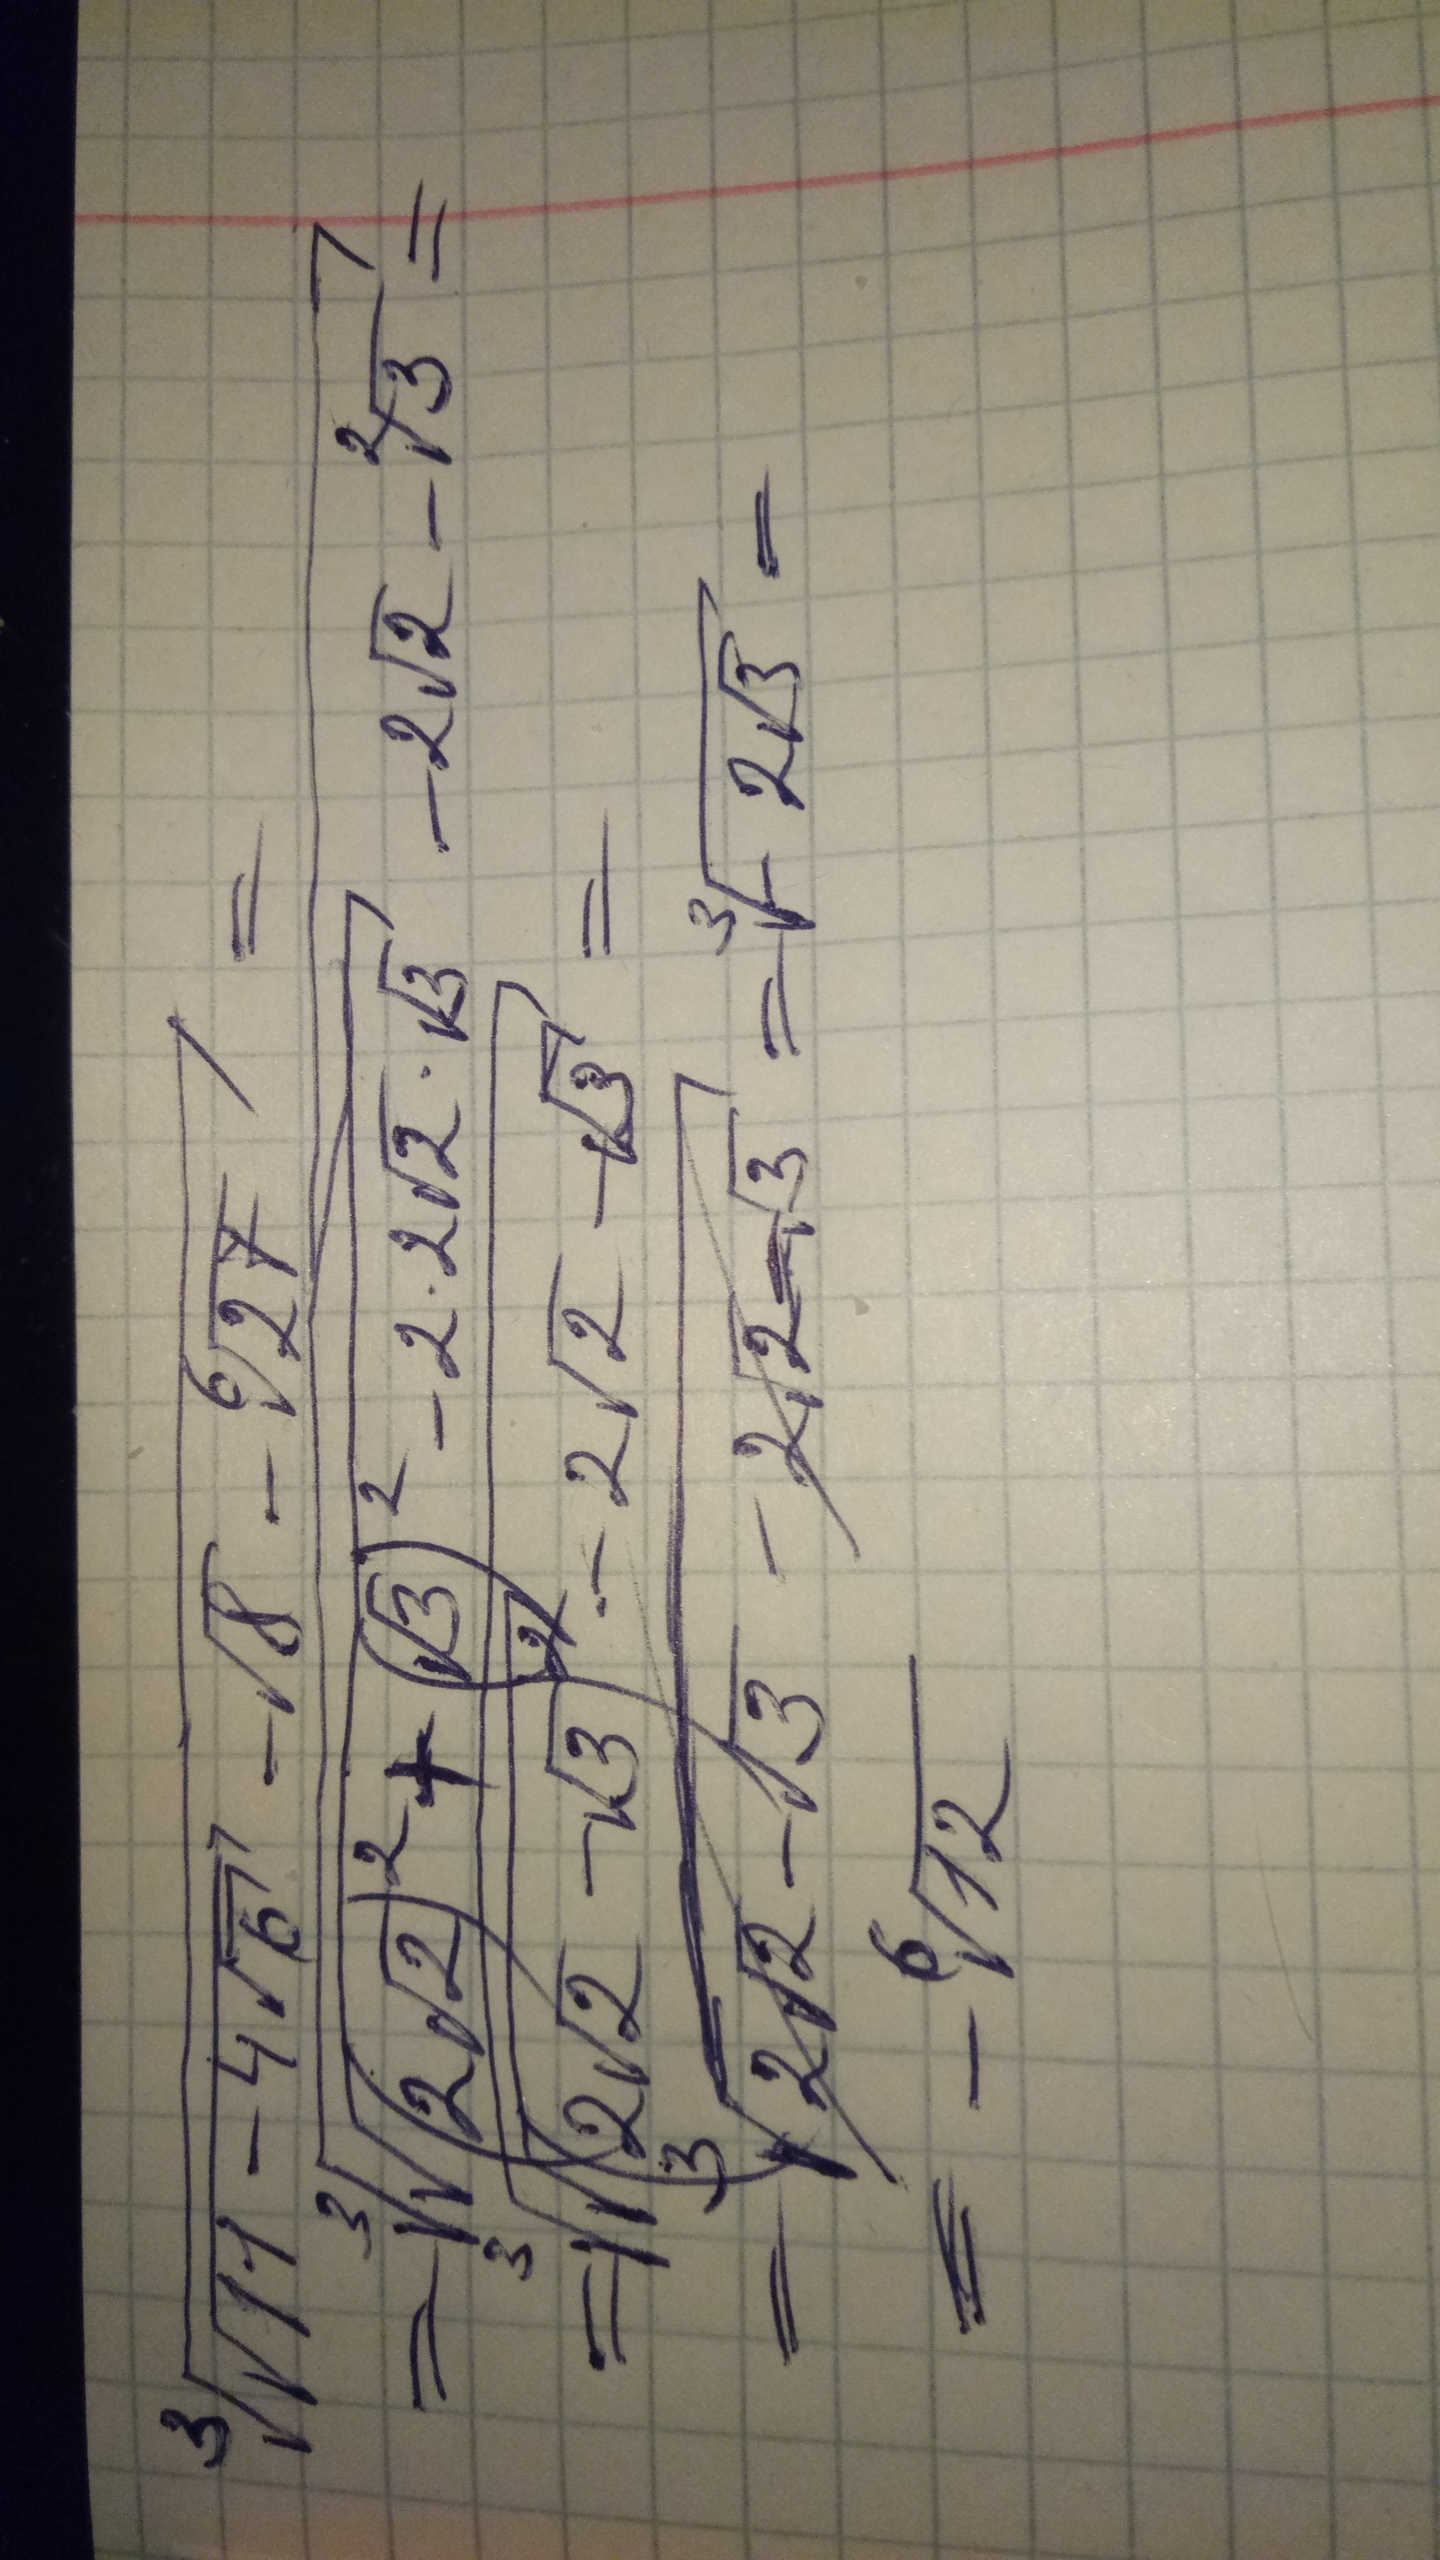 ∛(√(11 - 4√6) - √8 - ⁶√27) =
= ∛(√((2√2)² + (√3)² - 2·2√2·√3) - 2√2 - ²√3) =
= ∛(√((2√2 - √3)²) - 2√2 - √3) =
= ∛(2√2 - √3 - 2√2 - √3) = ∛(-2√3) =
= - ⁶√12